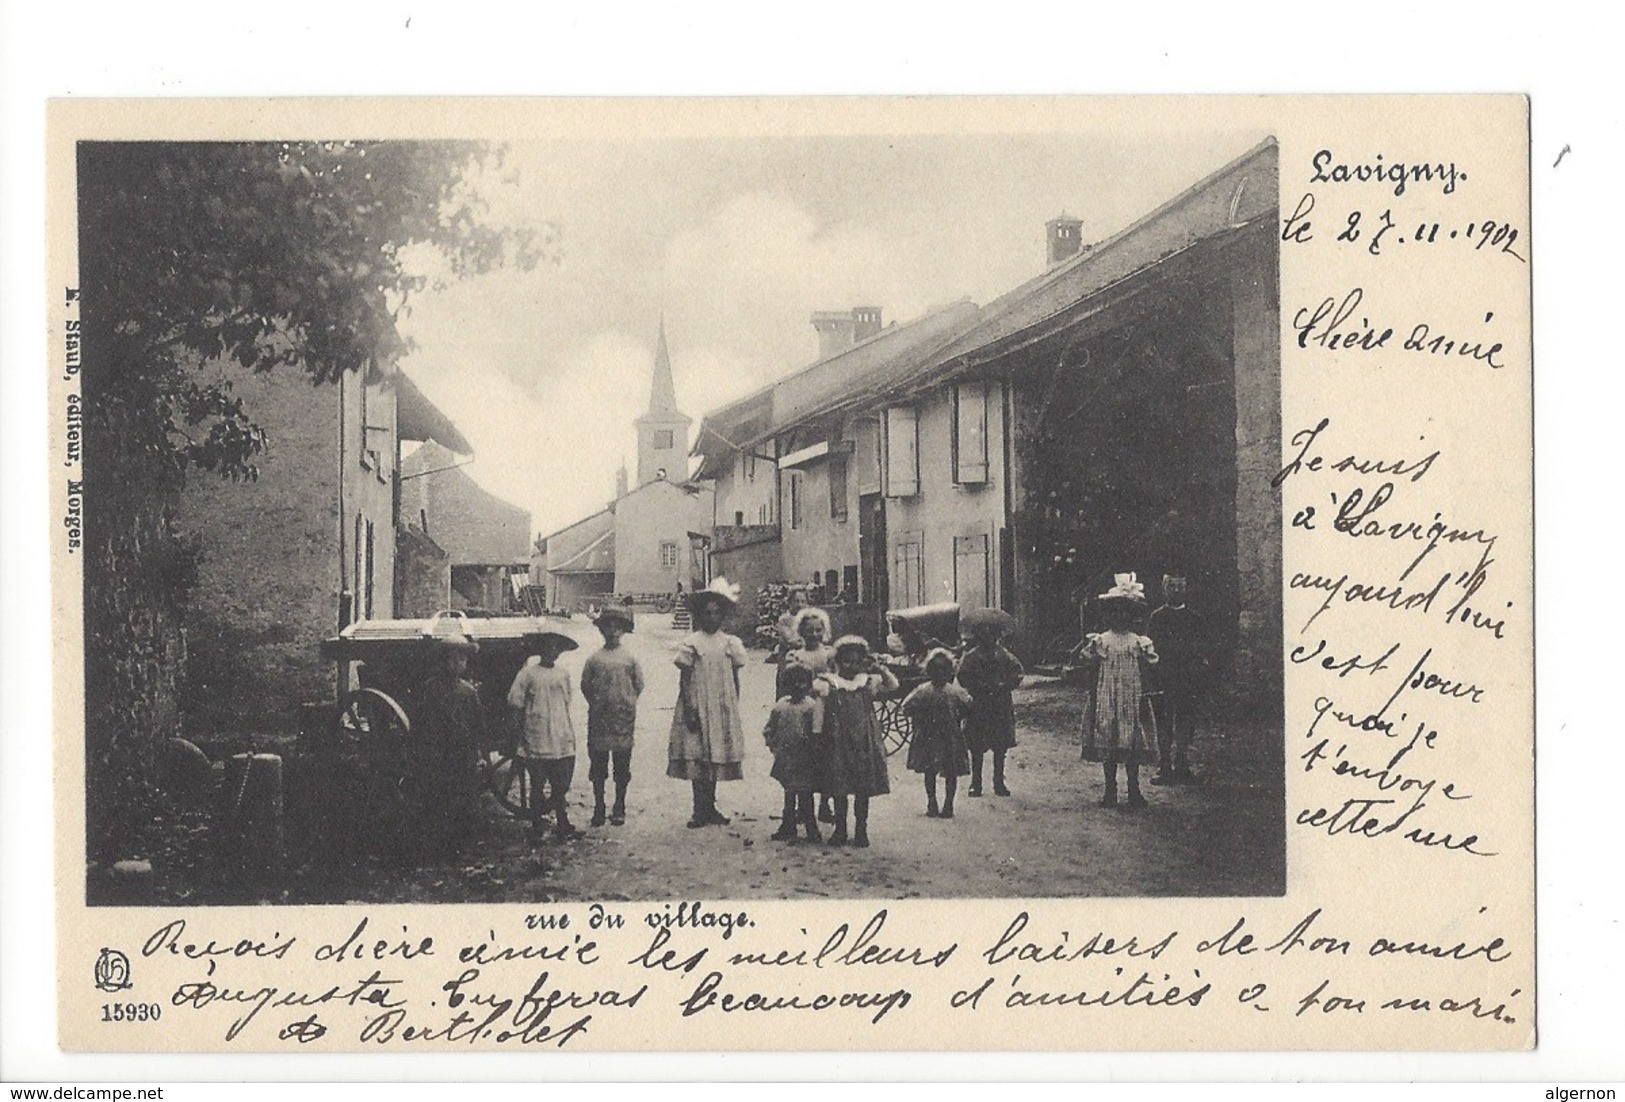 Lavigny.
le 27.11.1902
Chère amie
Je suis
à Lavigny
aujourd'hui
c'est pour
quoi je
t'envoye
cette vue
E. Staub, éditeur, Morges.
rue du village.
Reçois chère amie les meilleurs baisers de ton amie
Augusta. Tu feras beaucoup d'amitiés a ton mari.
A Bertholet
15930
www.delcampe.net
algernon